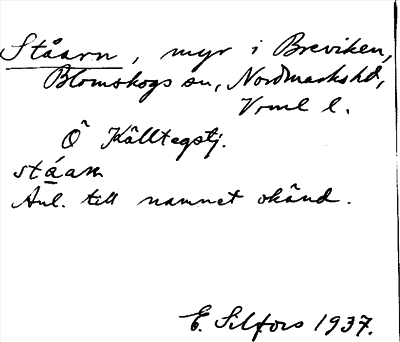 Ståarn, myr i Breviken,
Blomskogs sn, Nordmarks hd,
Vrml l.
Ö Källtegstj.
ståan
Anl. till namnet okänd.
E. Silfors 1937.